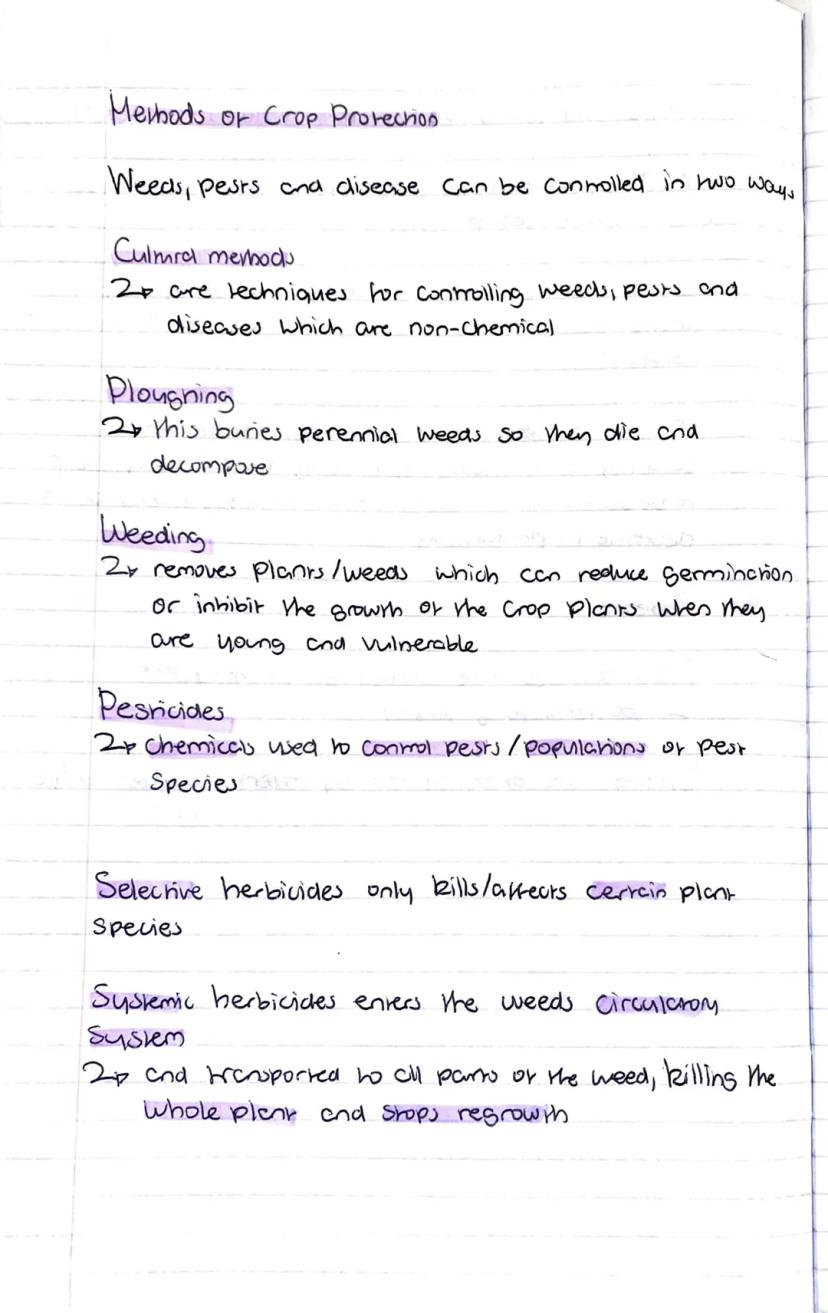 Methods of Crop Protection
Weeds, pests and disease can be controlled in two ways
Cultural methods
↳ are techniques for controlling weeds, pests and
diseases which are non-chemical
Ploughing
↳ this buries perennial weeds so they die and
decompose
Weeding
↳ removes plants/weeds which can reduce germination
or inhibit the growth of the crop plants when they
are young and vulnerable
Pesticides
↳ chemicals used to control pests/populations of pest
species
Selective herbicides only kills/affects certain plant
species
Systemic herbicides enters the weeds circulatory
system
↳ and transported to all parts of the weed, killing the
whole plant and stops regrowth